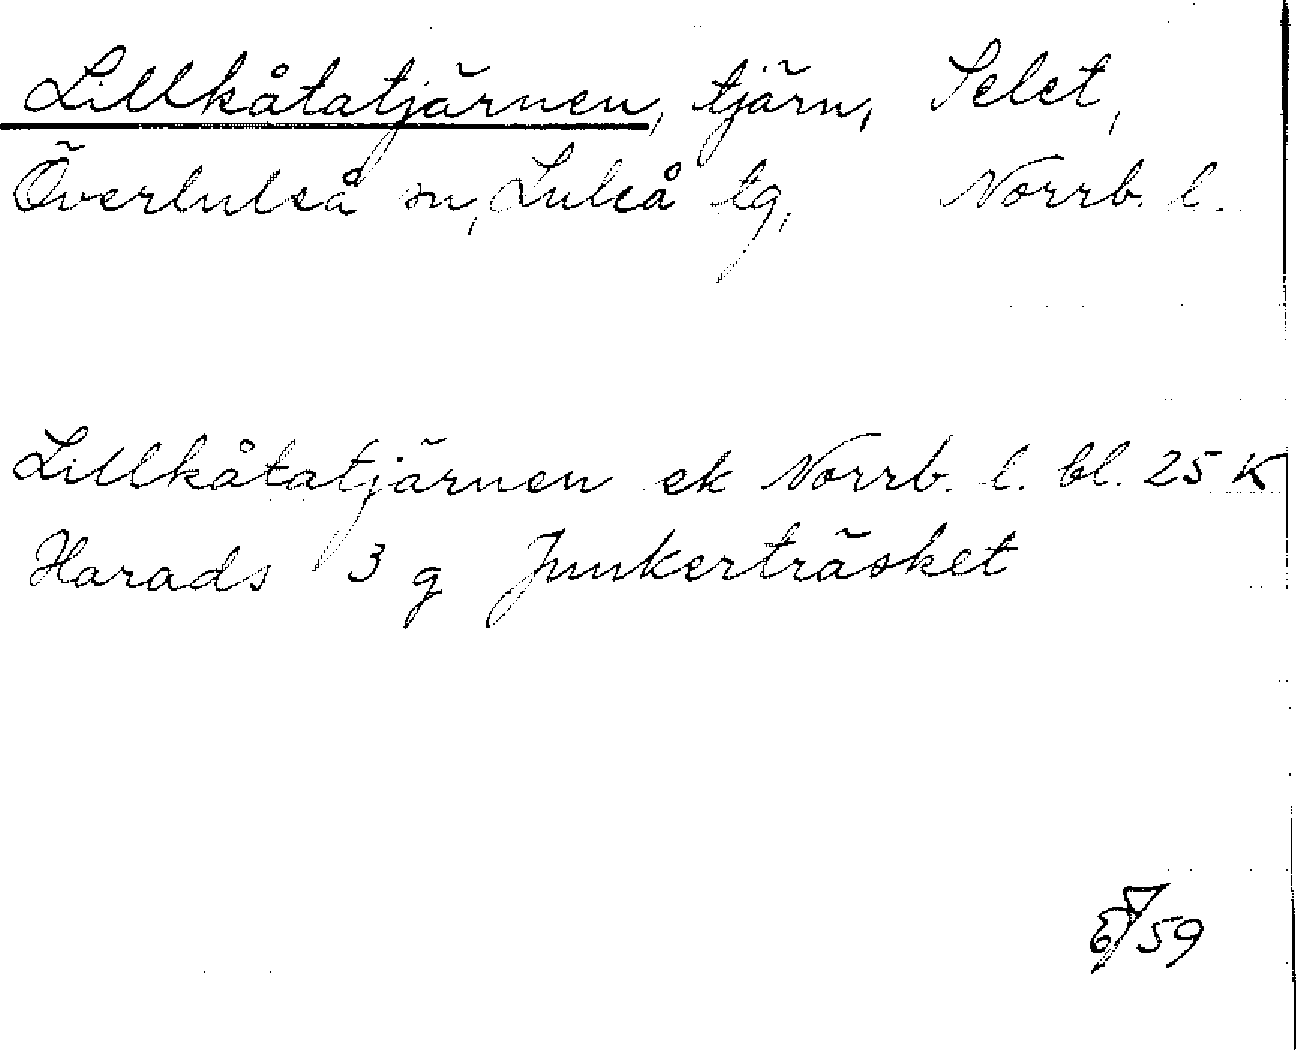 Lillkåtatjärnen, tjärn, Selet,
Överluleå sn, Luleå tg, Norrb. l.
Lillkåtatjärnen ek Norrb. l. bl. 25 K
Harads 3 g Junkerträsket
59